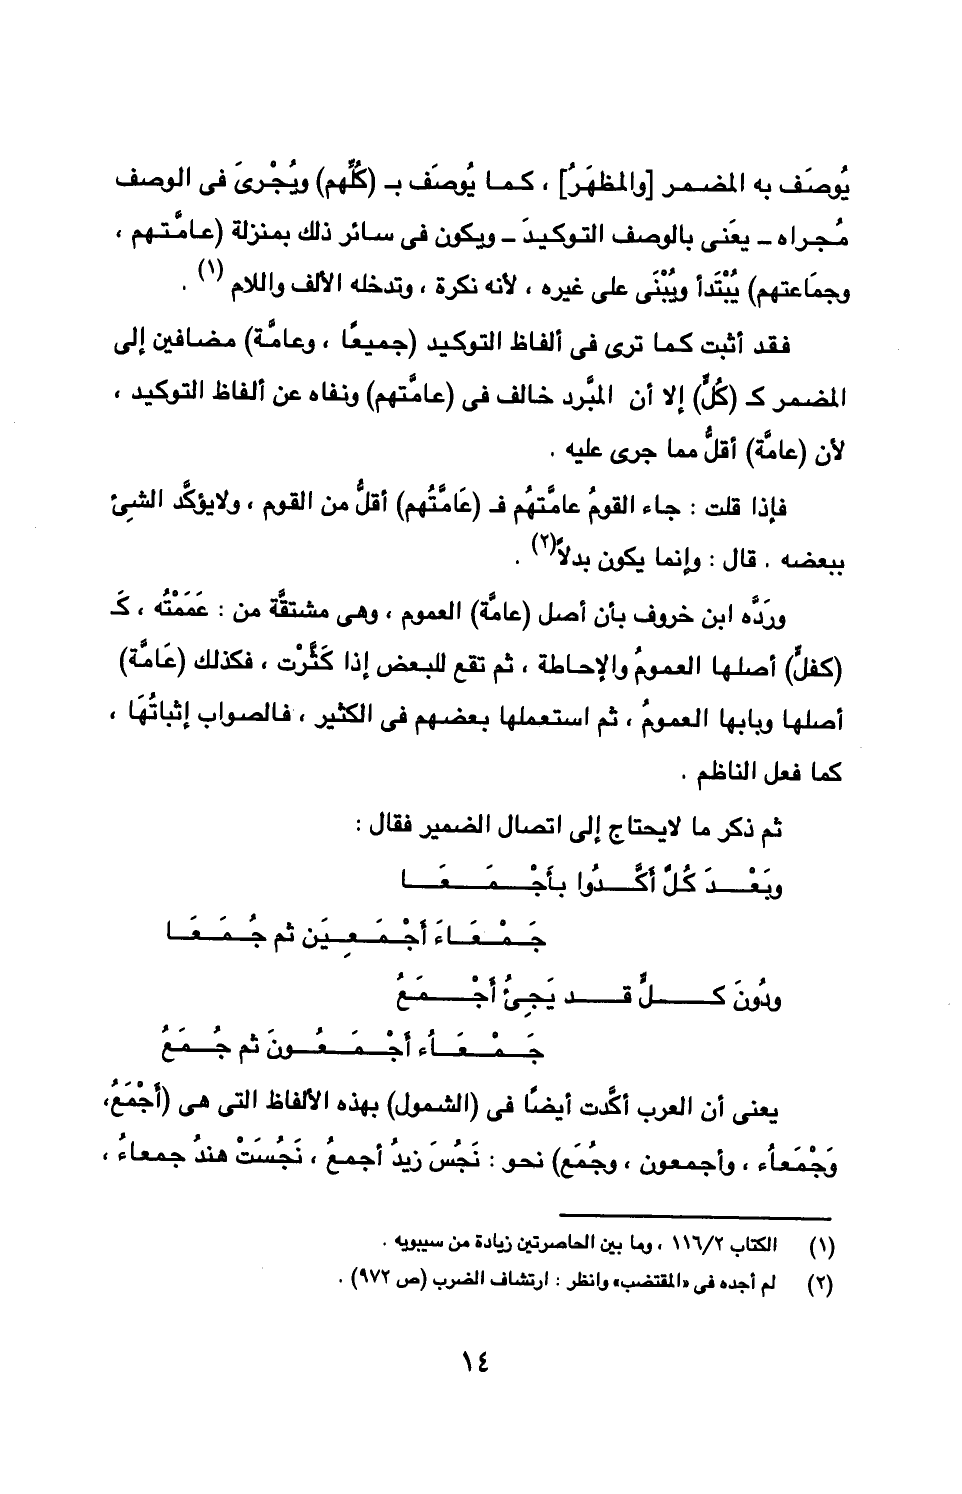 يُوصَف به المضمر [والمظهَرُ] ، كما يُوصَف بـ (كُلِّهم) ويُجْرىَ فى الوصف
مُجراه ـ يعَنى بالوصف التوكيدَ ـ ويكون فى سائر ذلك بمنزلة (عامَّتهم ،
وجمَاعتهم) يُبْتَدأ ويُبْنَى على غيره ، لأنه نكرة ، وتدخله الألف واللام (١) .
فقد أثبت كما ترى فى ألفاظ التوكيد (جميعًا ، وعامَّة) مضافين إلى
المضمر كـ (كُلٍّ) إلا أن المبَّرد خالف فى (عامَّتهم) ونفاه عن ألفاظ التوكيد ،
لأن (عامَّة) أقلُّ مما جرى عليه .
فإذا قلت : جاء القومُ عامَّتهُم فـ (عَامَّتُهم) أقلُّ من القوم ، ولايؤكَّد الشيئ
ببعضه . قال : وإنما يكون بدلاً(٢) .
وردَّه ابن خروف بأن أصل (عامَّة) العموم ، وهى مشتقَّة من : عَمَمْتُه ، كَـ
(كفلٍّ) أصلها العمومُ والإحاطة ، ثم تقع للبعض إذا كَثَّرْت ، فكذلك (عَامَّة)
أصلها وبابها العمومُ ، ثم استعملها بعضهم فى الكثير ، فالصواب إثباتُهَا ،
كما فعل الناظم .
ثم ذكر ما لايحتاج إلى اتصال الضمير فقال :
وبَعْـدَ كُلٍّ أكَّـدُوا بـأَجْـمَـعَـا
جَـمْـعَـاءَ أَجْـمَـعِـيَن ثم جُـمَـعَـا
ودُونَ كـلٍّ قـد يَجِئُ أَجْـمَـعُ
جَـمْـعَـاُء أَجْـمَـعُـونَ ثم جُـمَعُ
يعنى أن العرب أكَّدت أيضًا فى (الشمول) بهذه الألفاظ التى هى (أَجْمَعُ،
وَجْمَعاُء ، وأجمعون ، وجُمَع) نحو : نَجُسَ زيدُ أجمعُ ، نَجُسَتْ هندُ جمعاءُ ،
(١) الكتاب ١١٦/٢ ، وما بين الحاصرتين زيادة من سيبويه .
(٢) لم أجده فى «المقتضب» وانظر : ارتشاف الضرب (ص ٩٧٢) .
١٤